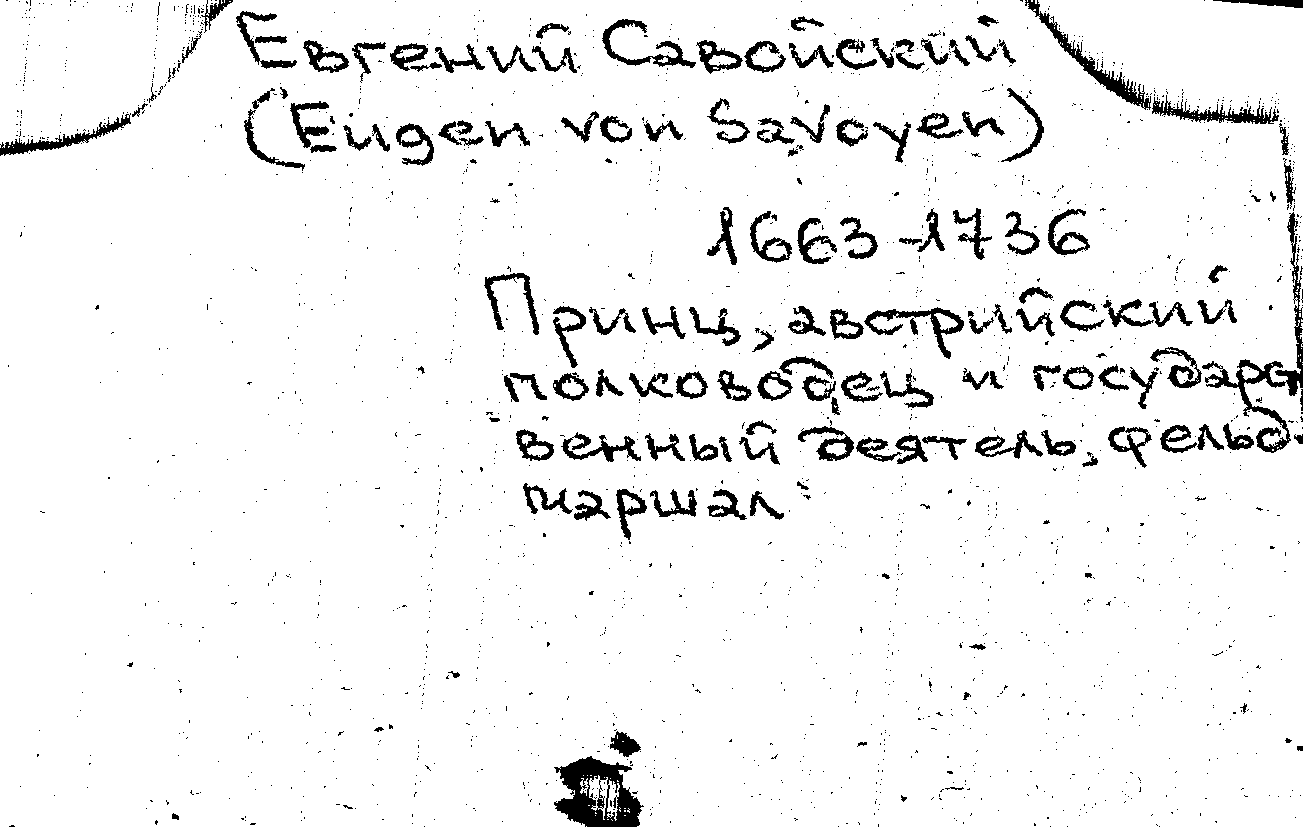 Евгений Савойский
(Eugen von Savoyen)
1663-1736
Принц, австрийский
полководец и государст
венный деятель, фельд-
маршал